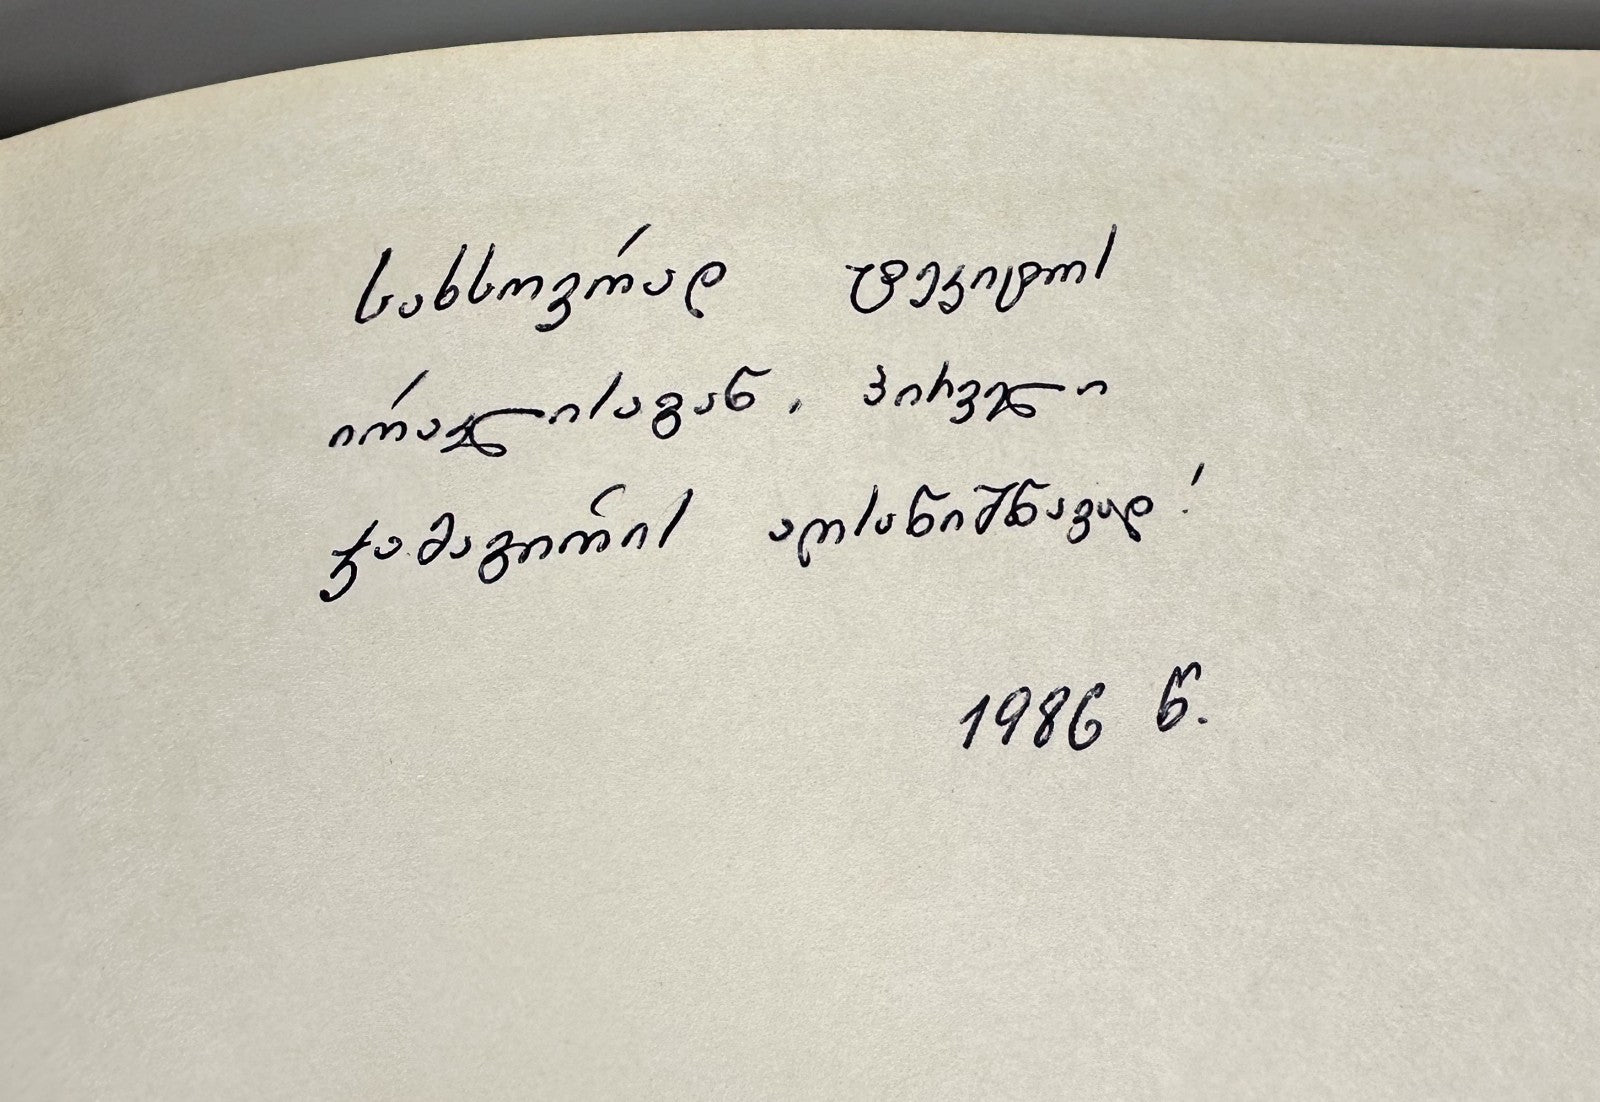 სახსოვრად
ირაკლისაგან, პირველი
ჯამაგირის აღსანიშნავად!
1986 წ.